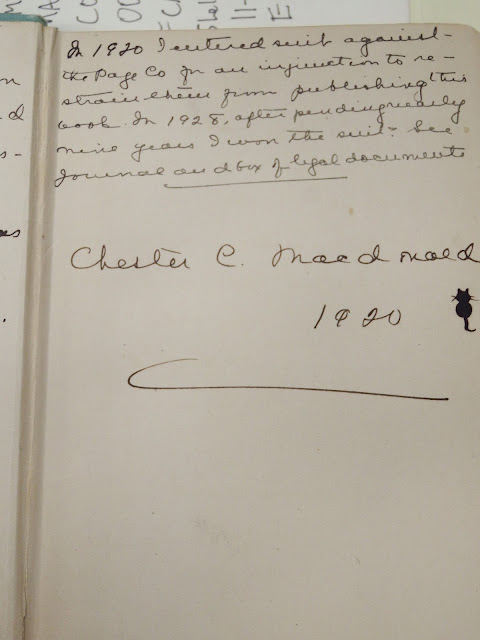 In 1920 I entered suit against
the Page Co for an injunction to re-
strain them from publishing this
book. In 1928, after pending nearly
nine years I won the suit. See
Journal and box of legal documents
Chester C. Macdonald
1920